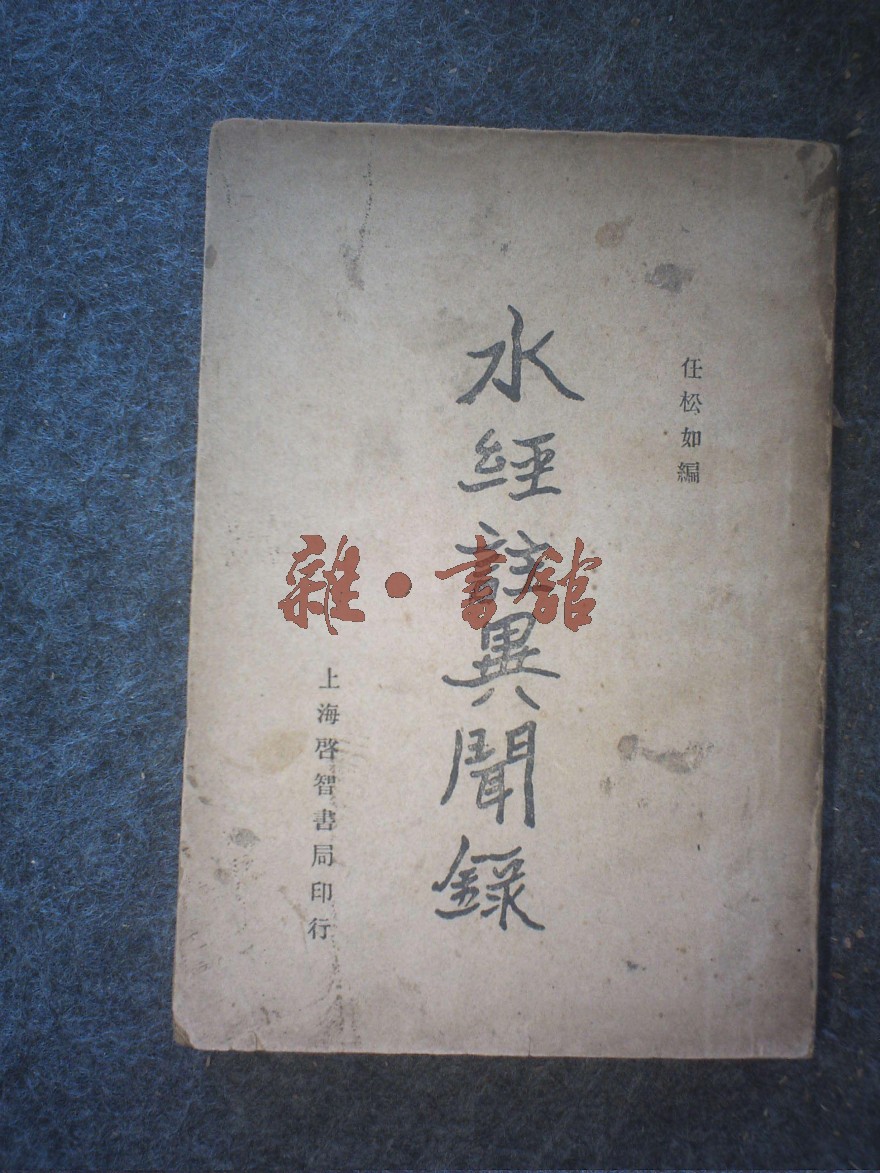 任松如編
水經註異聞錄
上海啓智書局印行
雜·書館